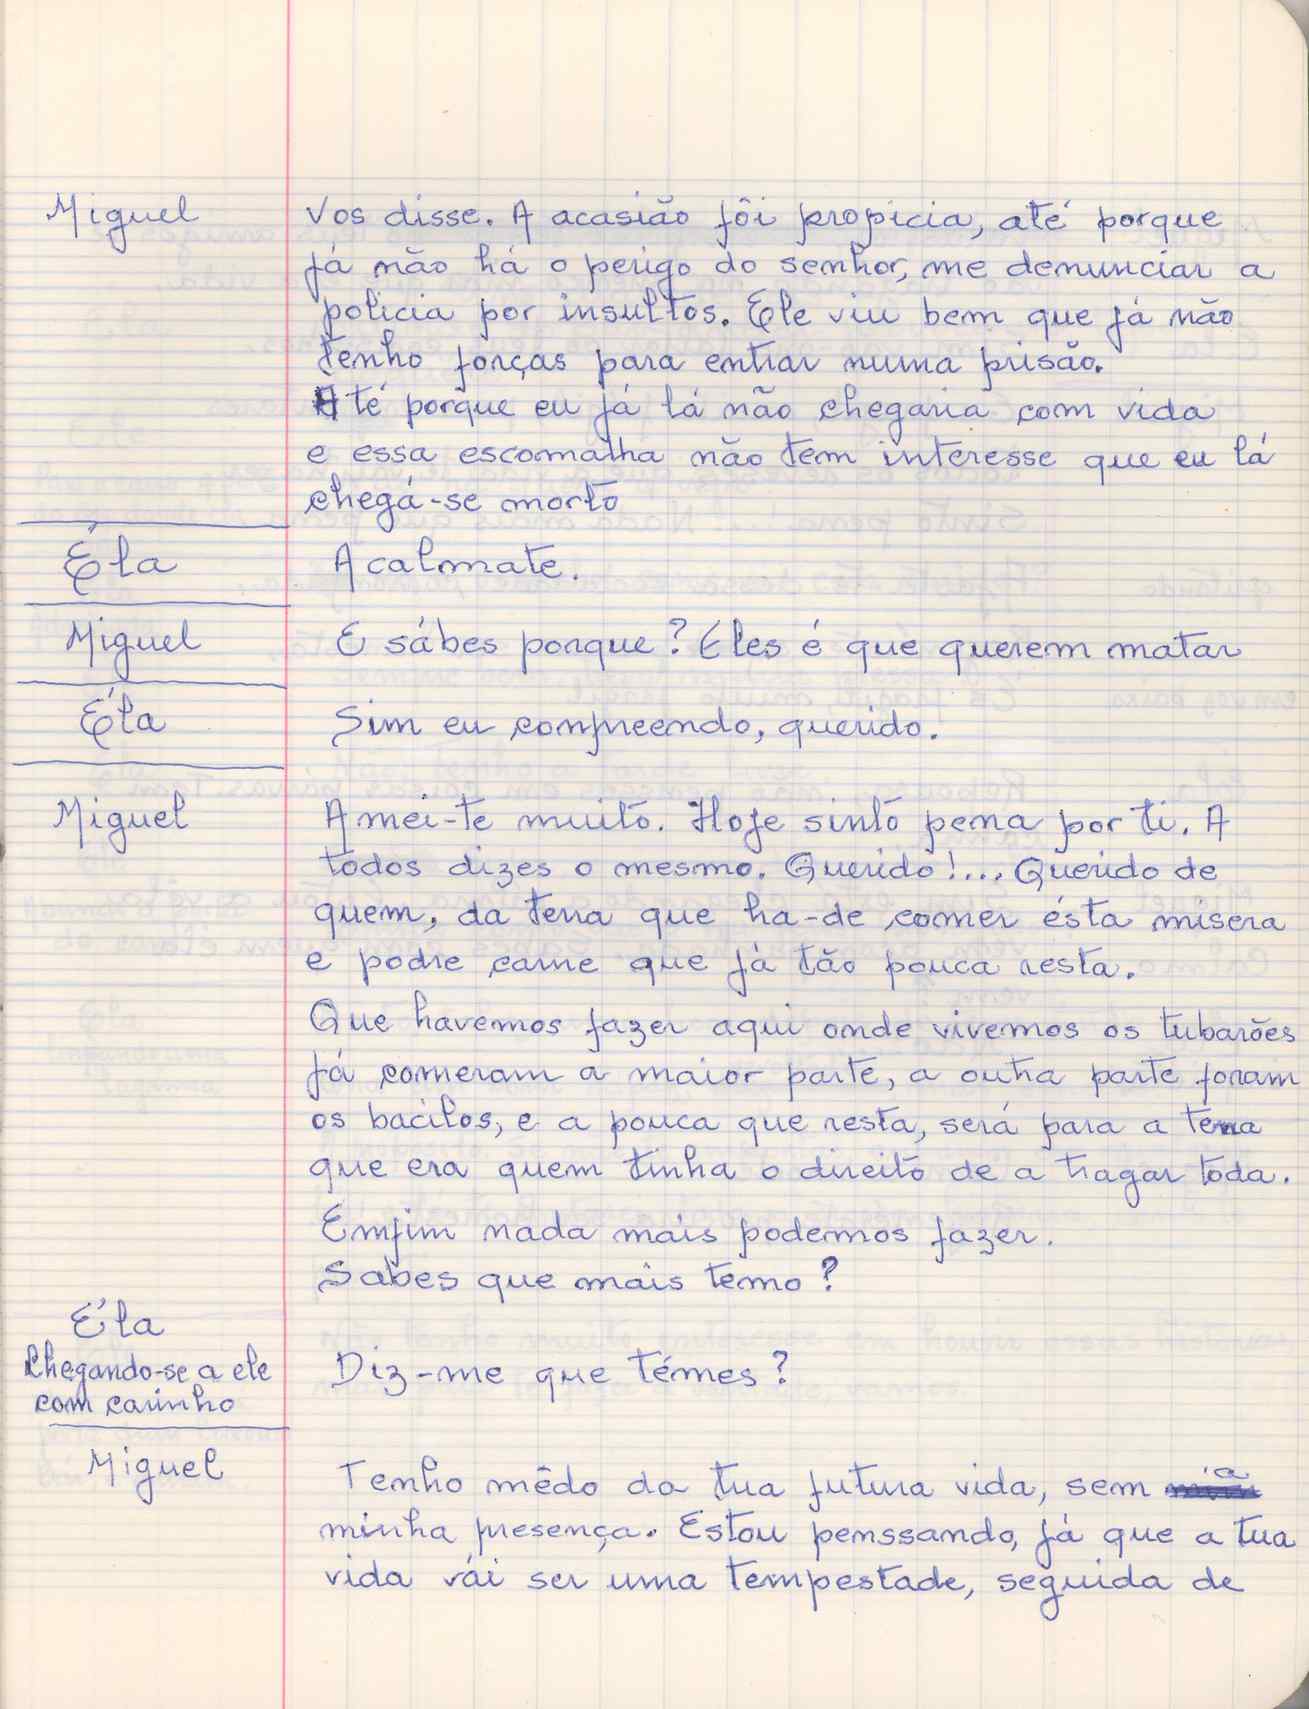 Miguel Vos disse. A acasião fôi propicia, até porque
já não há o perigo do senhor, me denunciar a
policia por insultos. Ele viu bem que já não
tenho forças para entrar numa prisão.
Até porque eu já lá não chegaria com vida
e essa escomalha não tem interesse que eu lá
chegá-se morto
Éla Acalmate.
Miguel E sábes porque? Eles é que querem matar
Éla Sim eu compreendo, querido.
Miguel Amei-te muito. Hoje sinto pena por ti. A
todos dizes o mesmo. Querido!... Querido de
quem, da terra que ha-de comer ésta misera
e podre carne que já tão pouca resta.
Que havemos fazer aqui onde vivemos os tubarões
já comeram a maior parte, a outra parte foram
os bacilos, e a pouca que resta, será para a terra
que era quem tinha o direito de a tragar toda.
Emfim nada mais podemos fazer.
Sabes que mais temo?
Éla
Chegando-se a ele Diz-me que témes?
com carinho
Miguel Tenho mêdo da tua futura vida, sem a
minha presença. Estou penssando, já que a tua
vida vái ser uma tempestade, seguida de